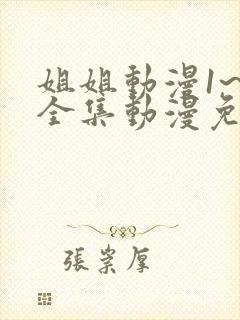 姐姐動漫1~
全集動漫免
張崇厚